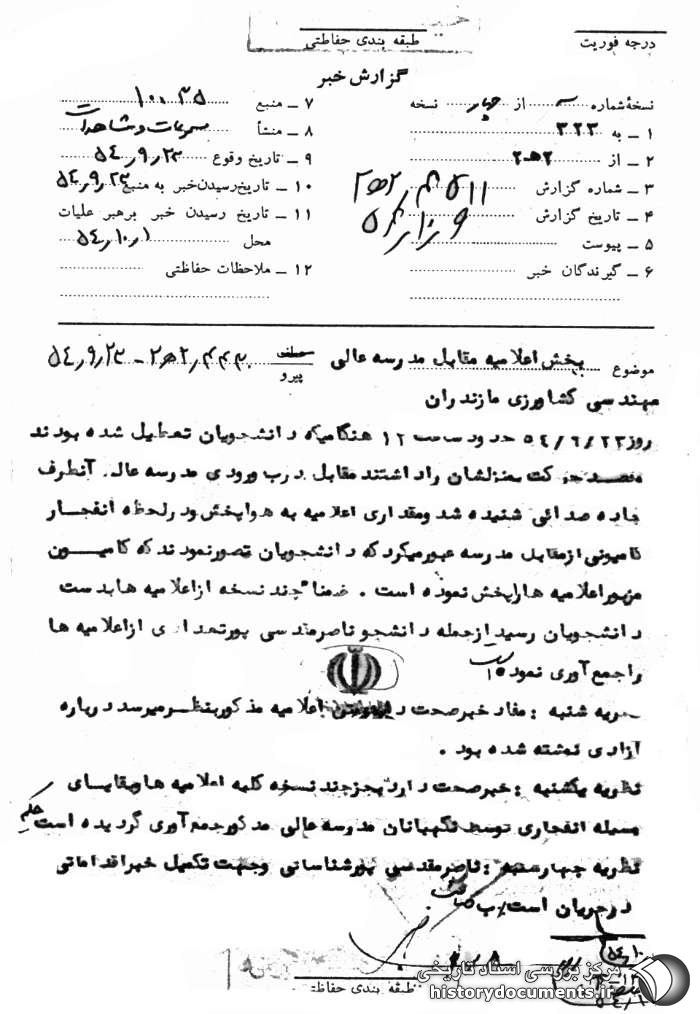 درجه فوریت
طبقه بندی حفاظتی
گزارش خبر
نسخهٔ شماره از چهار نسخه
۱ ـ به ۳۲۳
۲ ـ از ۲ﻫ۲
۳ ـ شماره گزارش
۴ ـ تاریخ گزارش
۵ ـ پیوست
۶ ـ گیرندگان خبر
۷ ـ منبع ۱۰۰۳۵
۸ ـ منشأ مسموعات و مشاهدات
۹ ـ تاریخ وقوع ۵۴٫۹٫۲۳
۱۰ ـ تاریخ رسیدن خبر به منبع ۵۴٫۹٫۲۳
۱۱ ـ تاریخ رسیدن خبر برهبر عملیات
محل ۵۴٫۱۰٫۱
۱۲ ـ ملاحظات حفاظتی
موضوع پخش اعلامیه مقابل مدرسه عالی
پیرو
مهندسی کشاورزی مازندران
روز ۵۴/۹/۲۳ حدود ساعت ۱۲ هنگامیکه دانشجویان تعطیل شده بودند
و قصد حرکت بمنزلشان را داشتند مقابل درب ورودی مدرسه عالی آنطرف
جاده صدائی شنیده شد و مقداری اعلامیه به هوا پخش و در لحظه انفجار
کامیونی از مقابل مدرسه عبور میکرد که دانشجویان تصور نمودند که کامیون
مزبور اعلامیه ها را پخش نموده است . ضمناً چند نسخه از اعلامیه ها بدست
دانشجویان رسید از جمله دانشجو ناصر مقدسی پور تعدادی از اعلامیه ها
را جمع آوری نمود
نظریه شنبه : مفاد خبر صحت دارد اعلامیه مذکور بنظر میرسد درباره
آزادی نوشته شده بود .
نظریه یکشنبه : خبر صحت دارد بجز چند نسخه کلیه اعلامیه ها و بقایای
وسیله انفجاری توسط نگهبانان مدرسه عالی مذکور جمع آوری گردیده است
نظریه چهارشنبه : ناصر مقدسی پور شناسائی و جهت تکمیل خبر اقداماتی
در جریان است
طبقه بندی حفاظتی
مرکز بررسی اسناد تاریخی
historydocuments.ir